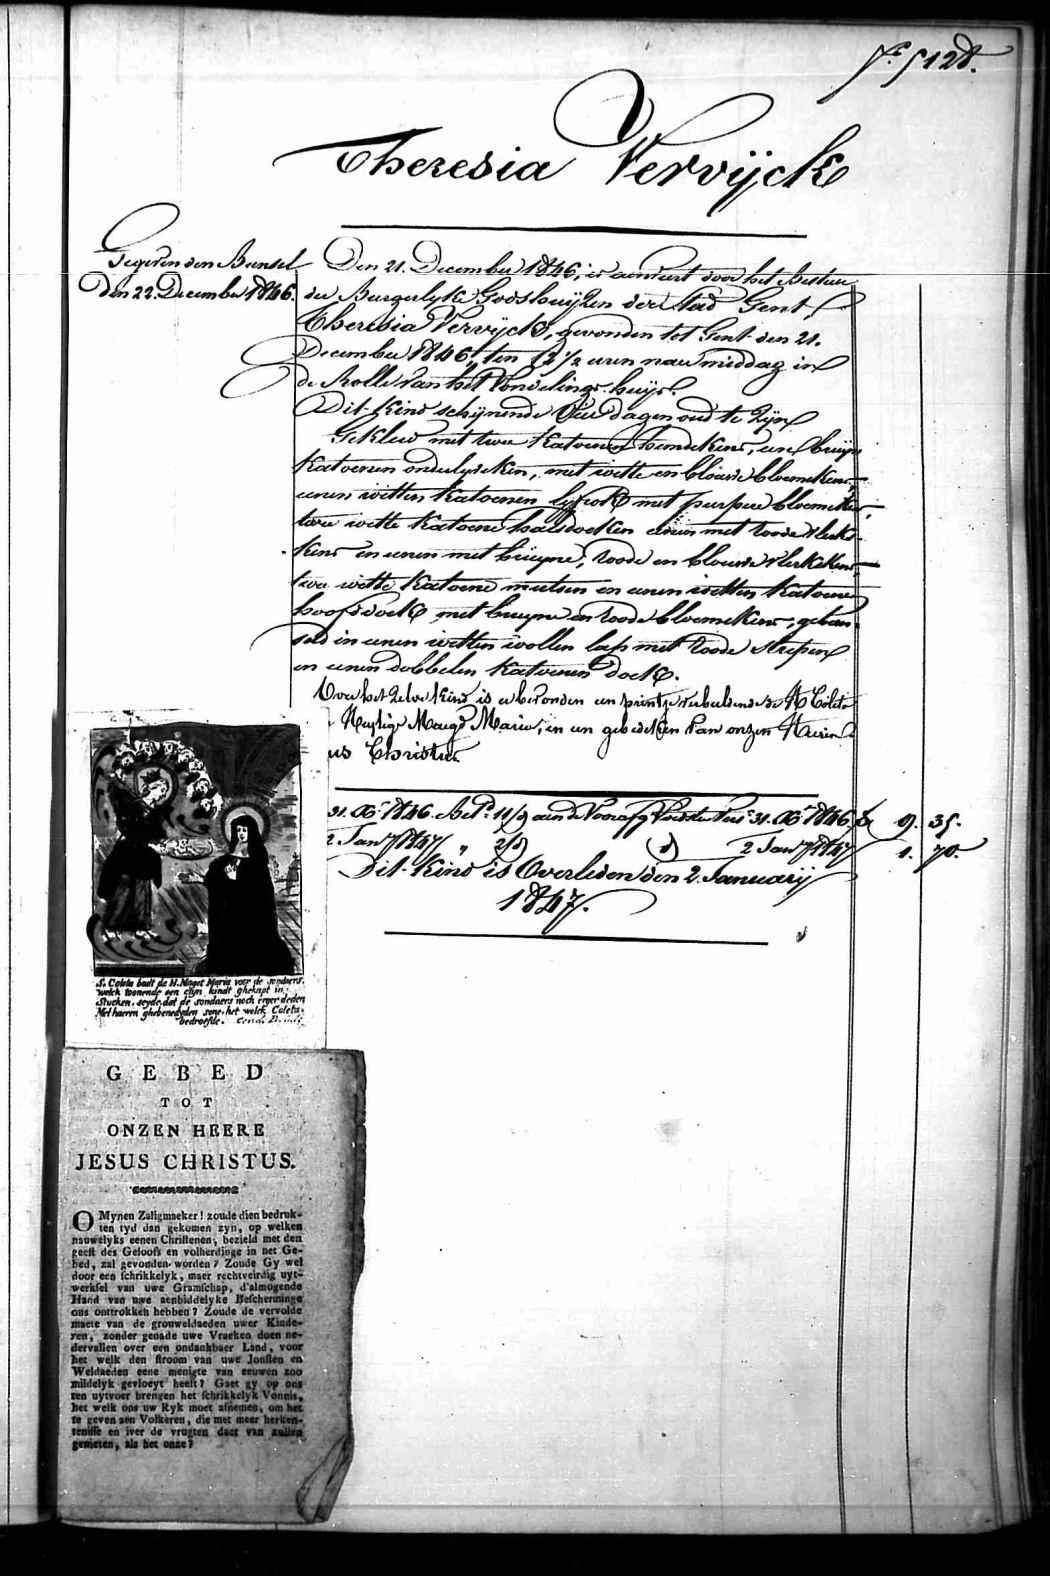 Nº 5128.
Theresia Vervijck
Gegeven den Bunsel
Den 22. December 1846.
Den 21. December 1846, is aenveirt door het Bestier
der Burgerlyke Godshuijzen der Stad Gent,
Theresia Vervijck, gevonden tot Gent den 21.
December 1846, ten 12 1/2 uren nae middag in
de Rolle van het Vondelings-huijs.
Dit kind schijnende dagen oud te Zijn
Gekleed met twee katoenen hemdekens, een bruijn
katoenen onderlyveken, met witte en blouwe bloemekens,
eenen witten katoenen lyfrok met purpere bloemekens,
twee witte katoene halsdoeken eenen met roode vleks-
kens en eenen met bruyne, roode en blouwe vlekskens,
twee witte katoene mutsen en eenen witten katoenen
hoofddoek met bruyne en roode bloemekens, gebun-
seld in eenen witten wollen lap met roode strepen
en eenen dobbelen katoenen doek.
Over het zelve kind is er bevonden een printje verbeeldende de H Colete
Heylige Maegd Maria, en een gebedeken van onzen Heere
us Christus
31. Xbr 1846. Betd. 11/9 aen de Voorafg Voedster 31. Xbr 1846 fr 9. 35.
2 Jany 1847 " 2/1 2 Jany 1847 1. 70.
Dit kind is Overleden den 2. Januarij
1847.
S. Coleta badt de H. Maget Maria voor de sondaers,
welck toonende een clyn kindt ghekapt in
Stucken, seyde, dat de sondaers noch erger deden
Met haeren ghebenedyden sone. het welck Coleta
bedroefde.
GEBED
TOT
ONZEN HEERE
JESUS CHRISTUS.
O Mynen Zaligmaeker! zoude dien bedruk-
ten tyd dan gekomen zyn, op welken
nauwelyks eenen Christenen, bezield met den
geest des Geloofs en volherdinge in het Ge-
bed, zal gevonden worden? Zoude Gy wel
door een schrikkelyk, maer rechtveirdig uyt-
werksel van uwe Gramschap, d'almogende
Hand van uwe aenbiddelyke Bescherminge
ons onttrokken hebben? Zoude de vervolde
maete van de grouweldaeden uwer Kinde-
ren, zonder genade uwe Vraeken doen ne-
dervallen over een ondankbaer Land, voor
het welk den stroom van uwe Jonsten en
Weldaeden eene menigte van eeuwen zoo
mildelyk gevloeyt heeft? Gaet gy op ons
ten uytvoer brengen het schrikkelyk Vonnis,
het welk ons uw Ryk moet afnemen, om het
te geven aen Volkeren, die met meer herken-
tenisse en iver de vrugten daer van zullen
genieten, als het onze?